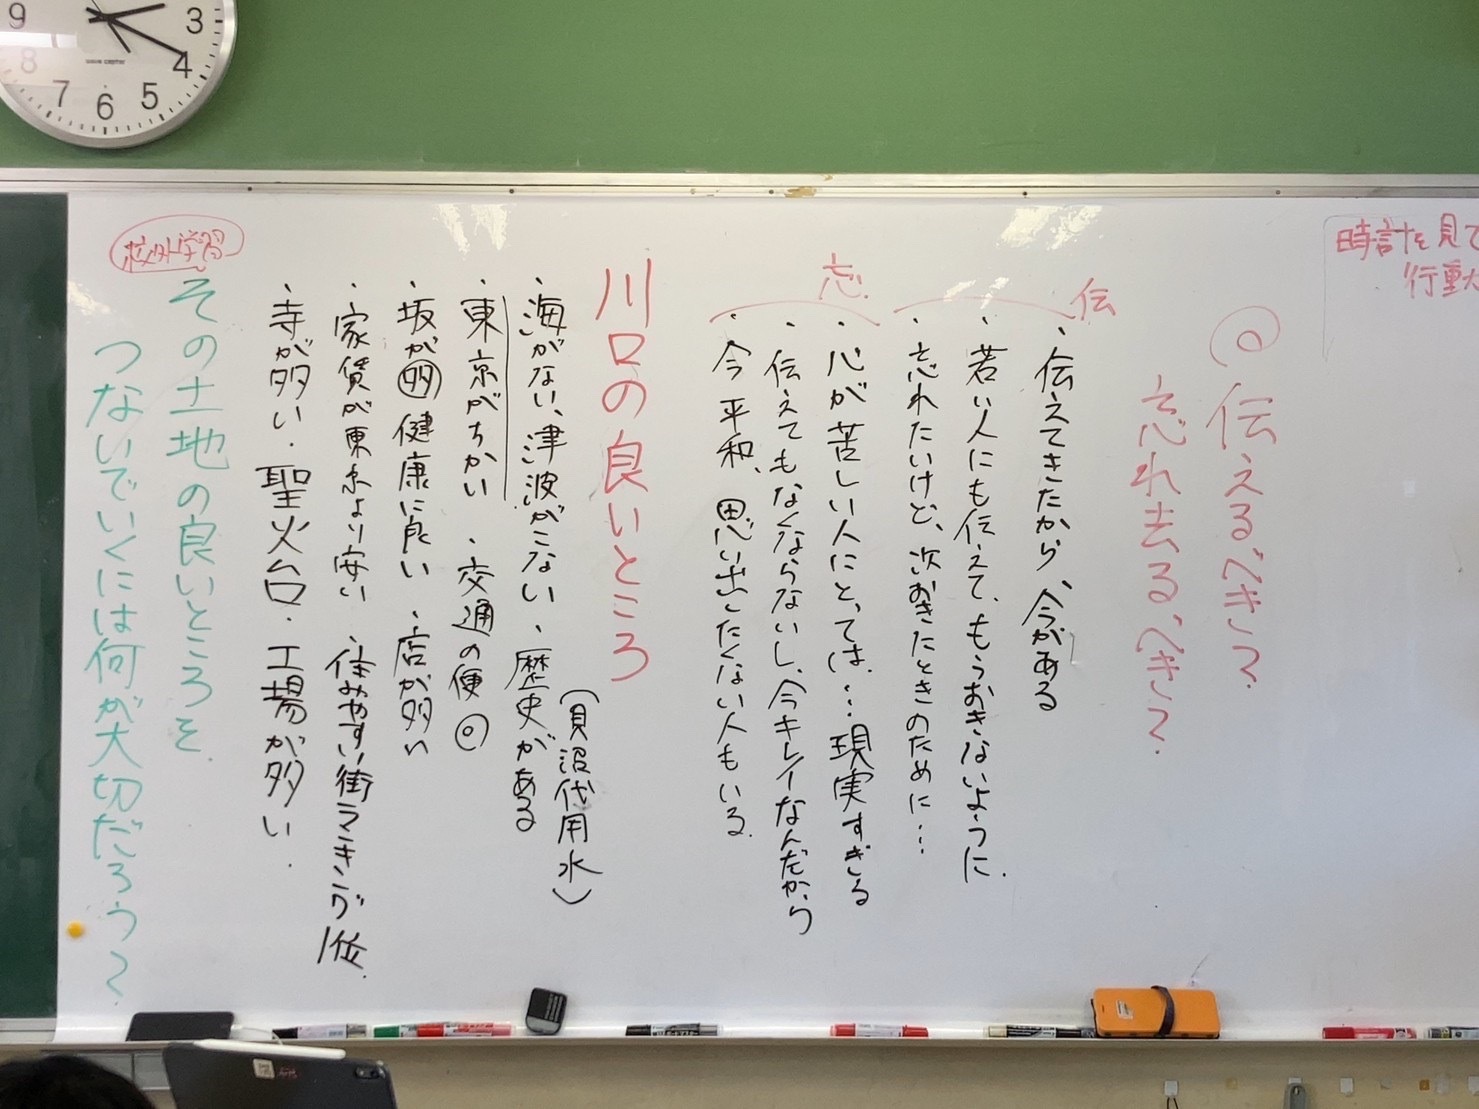 時計を見て
行動
◎伝えるべき?
忘れ去るべき?
伝
・伝えてきたから、今がある
・若い人にも伝えて、もうおきないように.
・忘れたいけど、次おきたときのために…
忘
・心が苦しい人にとっては…現実すぎる
・伝えてもなくならないし、今キレイなんだから
・今平和、思い出したくない人もいる.
川口の良いところ
(貝沼代用水)
・海がない、津波がこない ・歴史がある
・東京がちかい ・交通の便◎
・坂が多 健康に良い ・店が多い
・家賃が東京より安い ・住みやすい街ランキング1位.
・寺が多い ・聖火台 ・工場が多い.
校外学習
その土地の良いところを
つないでいくには何が大切だろう?
9
3
8
4
7
6
5